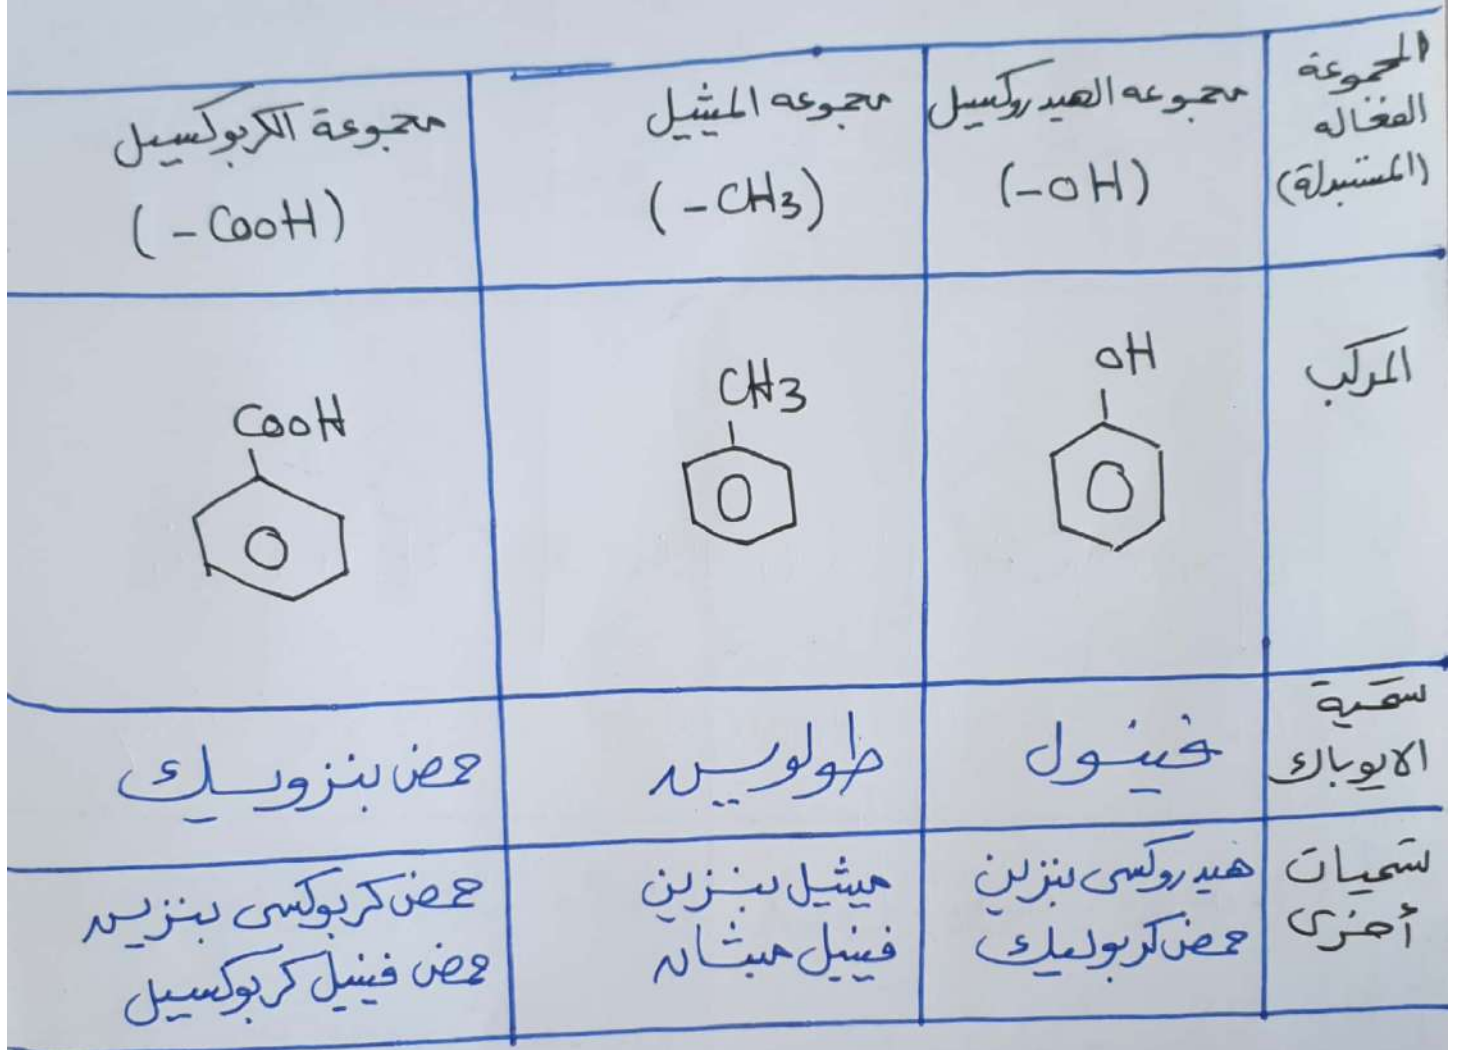 المجموعة
الفعاله
(المستبدلة)
مجموعه الهيدروكسيل
(-OH)
مجموعه الميثيل
(-CH3)
مجموعة الكربوكسيل
(-COOH)
المركب
OH
CH3
COOH
تسمية
الايوباك
فينول
طولوين
حمض بنزويك
تسميات
أخرى
هيدروكسى بنزين
حمض كربوليك
ميثيل بنزين
فينيل ميثان
حمض كربوكسى بنزين
حمض فينيل كربوكسيل